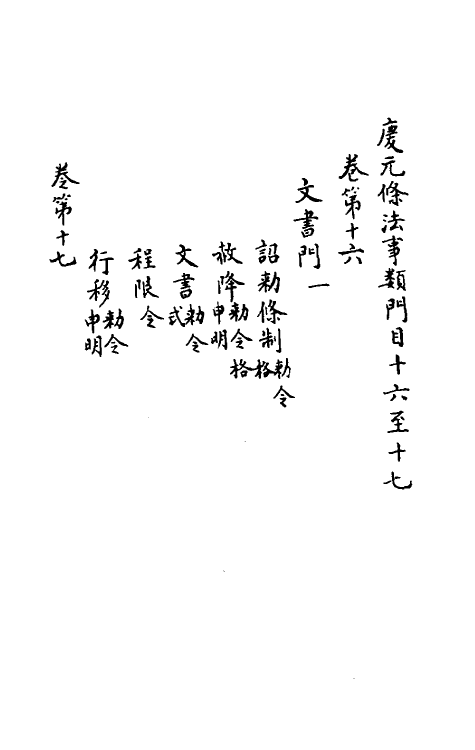 慶元條法事類門目十六至十七
卷第十六
文書門一
詔勅條制勅令格
赦降勅令格申明
文書勅令式
程限令
行移勅令申明
卷第十七